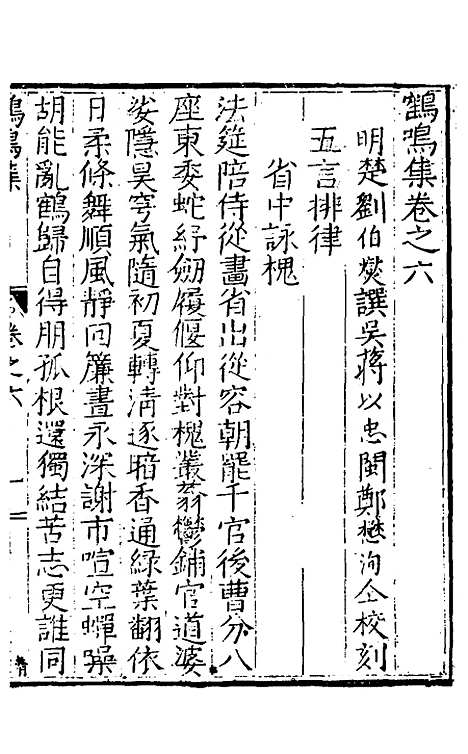 鶴鳴集卷之六
明楚劉伯燮譔吳蔣以忠閩鄭懋洵仝校刻
五言排律
省中詠槐
法筵陪侍從畫省出從容朝罷千官後曹分八
座東委蛇紓劔履偃仰對槐叢蓊鬱鋪官道婆
娑隱昊穹氣隨初夏轉淸逐暗香通綠葉翻依
日柔條舞順風靜回簾晝永深謝市喧空蟬噪
胡能亂鶴歸自得朋孤根還獨結苦志更誰同
鶴鳴集
卷之六
一